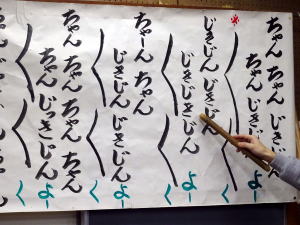 ちゃん ちゃん
ちゃん じきじ
よー
※
じきじん じきじん
じきじきじん
よー
ちゃーん ちゃん
じきじん
よー
ちゃん ちゃん ちゃん
ちゃん じっきじん
よー